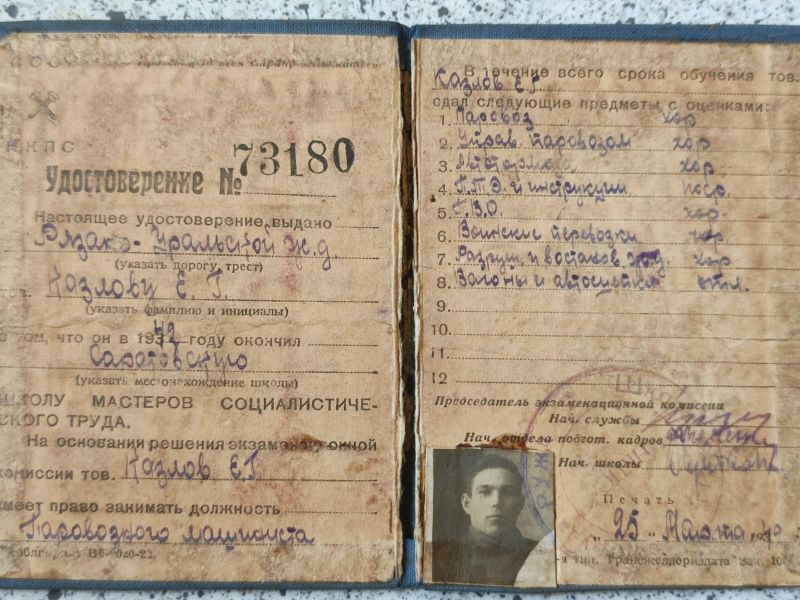 НКПС
Удостоверение № 73180
Настоящее удостоверение выдано
Рязано-Уральской ж.д.
(указать дорогу, трест)
тов. Казлову Е. Г.
(указать фамилию и инициалы)
в том, что он в 19 42 году окончил
Саратовскую
(указать местонахождение школы)
ШКОЛУ МАСТЕРОВ СОЦИАЛИСТИЧЕ-
СКОГО ТРУДА.
На основании решения экзаменационной
комиссии тов. Казлов Е Г
имеет право занимать должность
Паровозного машиниста
В течение всего срока обучения тов.
Казлов Е Г
сдал следующие предметы с оценками:
1. Паровоз хор
2. Управ. паровозом хор
3. Автотормоза хор
4. П.Т.Э. и инструкции поср.
5. Г.В.О. хор.
6. Воинские перевозки хор
7. Разруш. и востанов. ж.д. хор
8. Вагоны и автосцепка отл.
9.
10.
11.
12
Председатель экзаменационной комиссии
Нач. службы
Нач. отдела подгот. кадров
Нач. школы
Печать
„25" Марта 19
тип. Трансжелдориздата Зак.